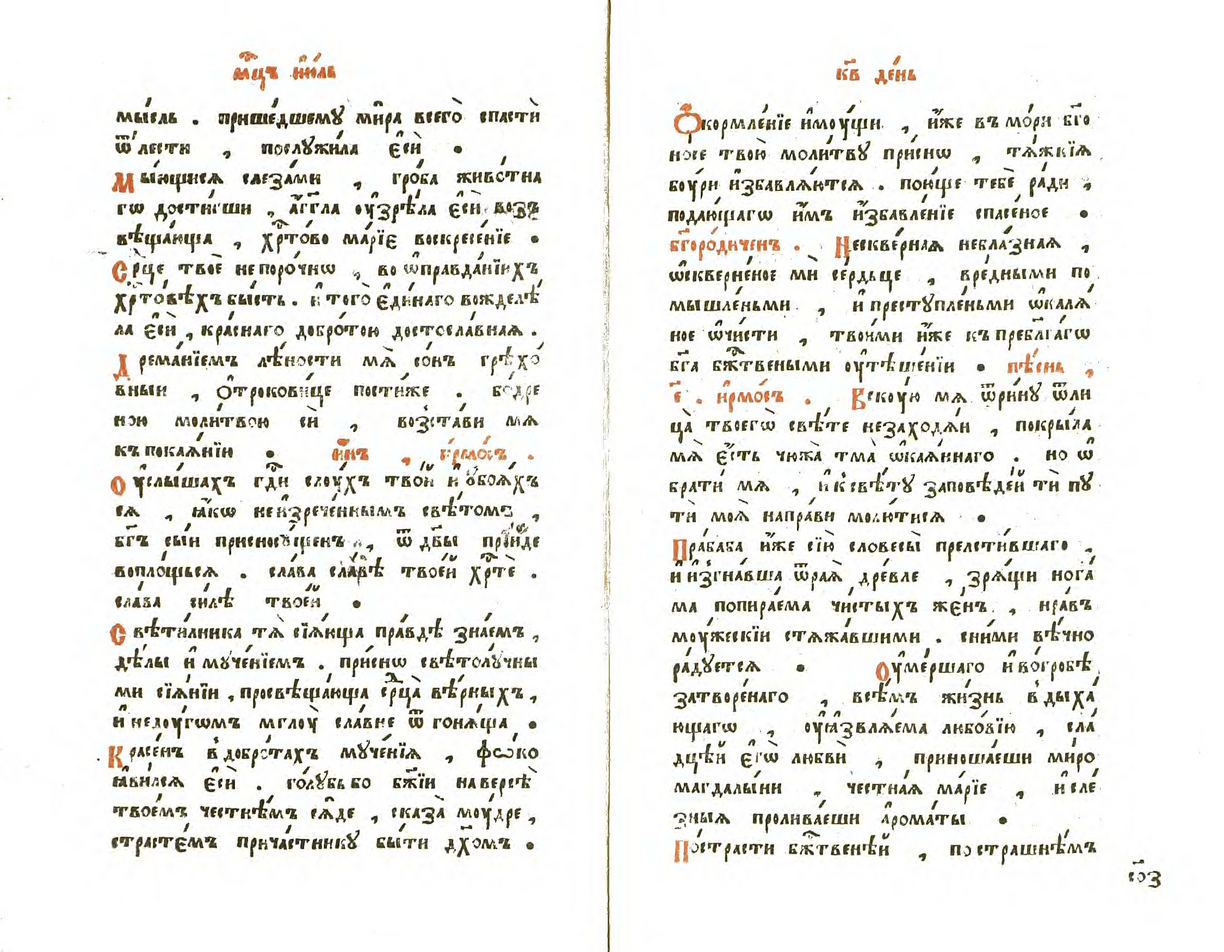 мц҃ъ ію҃ль
мы́сль . прише́дшемꙋ ми́ра всего̀ спастѝ
ѿ ле́сти , послꙋжи́ла є҆сѝ .
Мы́ющися слеза́ми , гро́ба живо́тна
гѡ дости́гши , а҆́гг҃ла оу҆зрѣ́ла є҆сѝ возъ
вѣща́юща , хр҃то́во мр҃і́є воскресе́нїе .
Ср҃це твоѐ непоро́чнѡ , во ѡ҆правда́нїихъ
хр҃то́вѣхъ бы́сть . и҆ того̀ є҆ди́наго вожделѣ́
ла є҆сѝ , кра́снаго добро́тою достосла́вная .
Дрема́нїемъ лѣ́ности мѧ̀ со́нъ грѣхо́
вныи , ѻ҆трокови́це пости́же . бо́дре
ною моли́твою сѝ , возста́ви мѧ
къ покаѧ́нїю . и҆́нъ , і҆рмо́съ .
Оу҆слы́шахъ гд҃и слоу́хъ тво́й и҆ оу҆боѧ́хъ
сѧ , ꙗ҆́кѡ неизрече́ннымъ свѣ́томъ ,
бг҃ъ сы́и присносꙋ́щенъ , ѿ дв҃ы прїи́де
воплощьсѧ . сла́ва сла́вѣ твое́й хр҃тѐ .
сла́ва си́лѣ твое́й .
Свѣти́лника тѧ̀ сїѧ́юща пра́вдѣ зна́емъ ,
дѣ́лы и҆ мꙋче́нїемъ . при́снѡ свѣтолꙋчны
ми сїѧ́нїи , просвѣща́юща ср҃ца̀ вѣ́рныхъ ,
и҆ недоу́гѡмъ мглоу̀ сла́вне ѿ гонѧ́ща .
Кра́сенъ в добро́тахъ мꙋче́нїѧ , фѡко
ꙗ҆ви́лсѧ є҆сѝ . го́лꙋбь бо бж҃їи на версѣ̀
твое́мъ честнѣ́мъ сѧ́де , сказа̀ моу́дре ,
страсте́мъ прича́стникꙋ бы́ти дх҃омъ .
кв҃ де́нь
Ѻ҆кормле́нїе и҆моу́щи , и҆́же въ мо́ри бг҃о
но́се твою̀ моли́твꙋ при́снѡ , тѧ́жкїѧ
боу́ри и҆збавлѧ́ютсѧ . пою́ще тебѐ ра́ди ,
подаю́щагѡ и҆̀мъ и҆збавле́нїе спасе́ное .
бг҃оро́диченъ . Нескве́рнаѧ небла́знаѧ ,
ѡ҆скверне́ное мѝ се́рдьце , вре́дными по
мышле́ньми , и҆ престꙋпле́ньми ѡ҆калѧ́
ное ѡ҆чи́сти , твои́ми и҆́же къ пребл҃га́гѡ
бг҃а бж҃твеными оу҆тѣше́нїи . пѣ́снь ,
є҃ . і҆рмо́съ . Вскоу́ю мѧ ѿри́нꙋ ѿ ли
ца̀ твоегѡ̀ свѣ́те незаходѧ́и , покры́ла
мѧ̀ є҆́сть чюжа̀ тма̀ ѡ҆каѧ́ннаго . но ѡ҆
брати́ мѧ , и҆ къ свѣ́тꙋ за́повѣдей тѝ пꙋ
тѝ моѧ̀ напра́ви молю́тисѧ .
Праба́ба и҆́же сїю̀ словесы̀ прелсти́вшаго ,
и҆ и҆згна́вша ѿ раѧ̀ дре́вле , зрѧ́щи нога́
ма попира́ема чи́стыхъ же́нъ , нра́въ
моу́жескїи стѧжа́вшими . сни́ми вѣ́чно
ра́дꙋетсѧ . Оу҆ме́ршаго и҆ во гро́бѣ
затворе́наго , всѣ̑мъ жи́знь в дыха́
ющагѡ , оу҆ꙗзвлѧ́ема любо́вїю , сла́
дцѣй є҆гѡ̀ любвѝ , приноша́еши ми́ро
магдалы́ни , честна́ѧ мр҃і́е , и҆ сле́
зныѧ пролива́еши а҆рома́ты .
По стра́сти бж҃твенѣй , по стра́шнѣмъ
со҃з